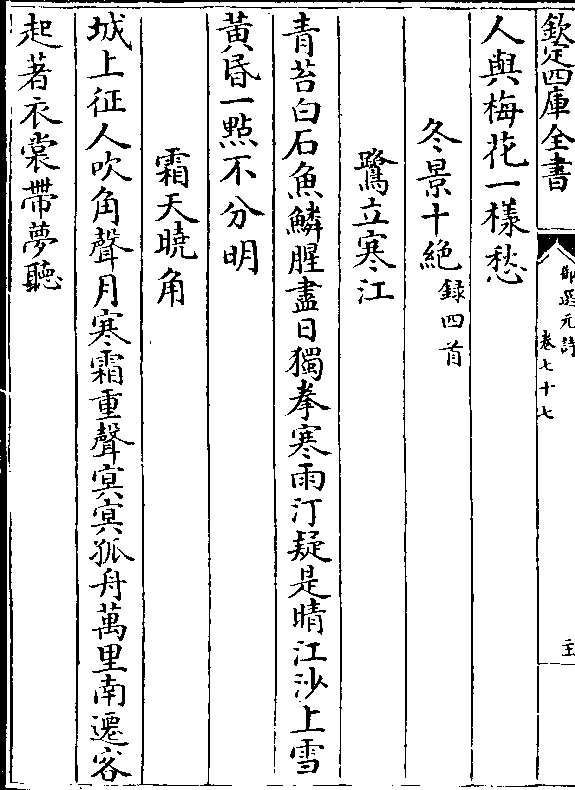 欽定四庫全書
御選元詩
卷七十七
人與梅花一樣愁
冬景十絶録四首
鷺立寒江
青苔白石魚鱗腥盡日獨拳寒雨汀疑是晴江沙上雪
黄昏一點不分明
霜天曉角
城上征人吹角聲月寒霜重聲冥冥孤舟萬里南遷客
起著衣裳帶夢聽